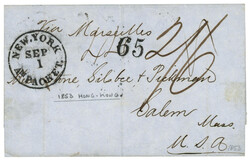 Via Marseilles
NEW-YORK
SEP
1
AM.PACKET.
65
2/6
Silsbee & Pickman
1853 HONG-KONG
Salem
Mass.
U.S.A